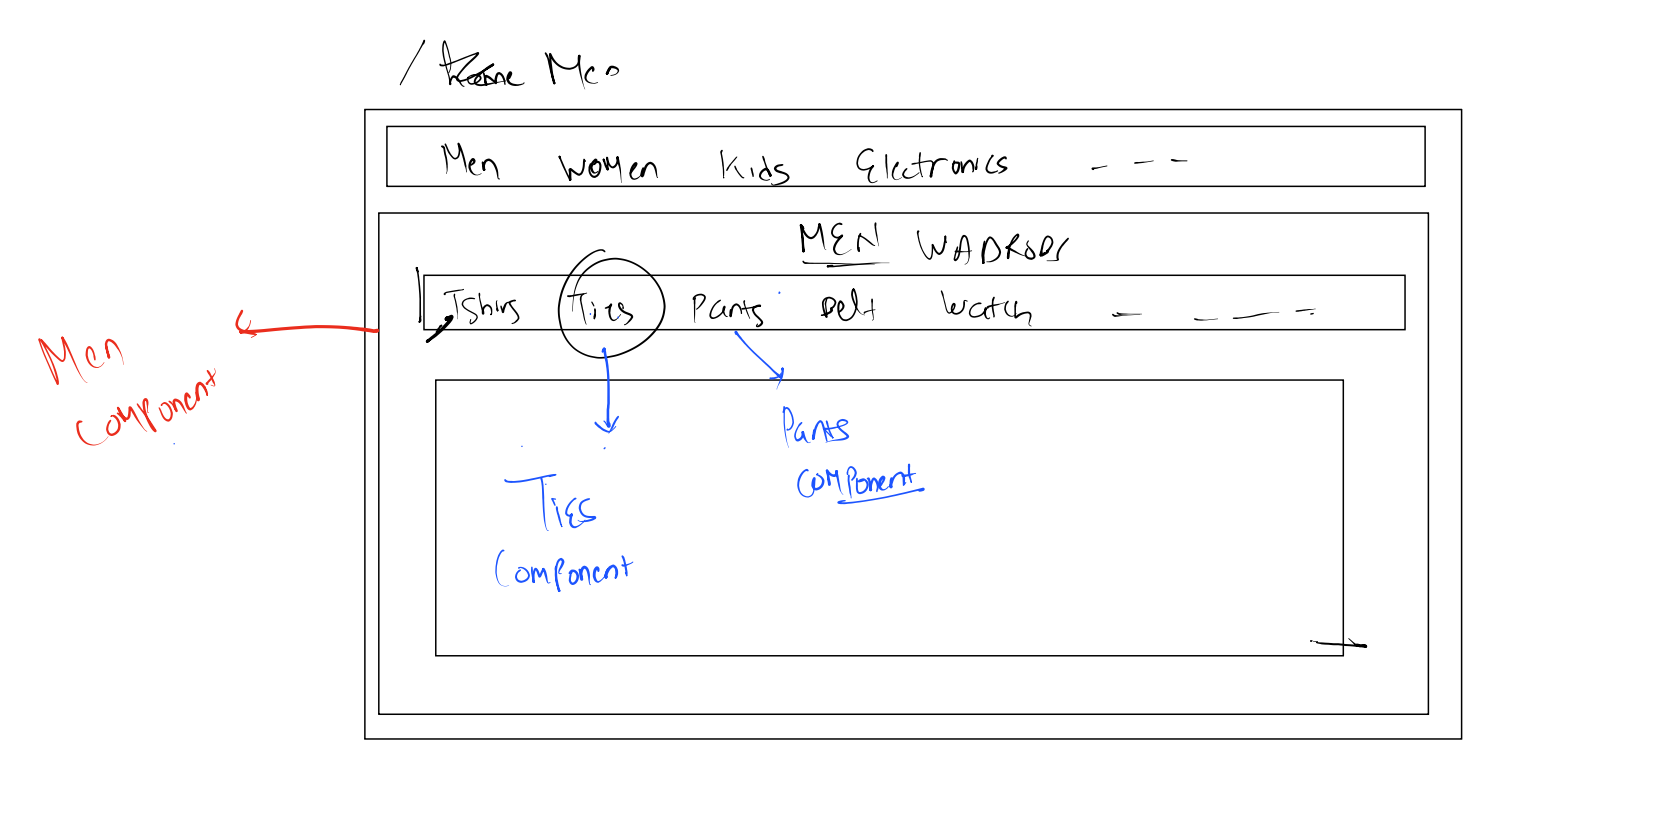 / Home Men
Men Women Kids Electronics - - -
MEN WADRODS
Tshirs Ties Pants Belt Watch - - - -
Men
Component
Pants
Component
Ties
Component